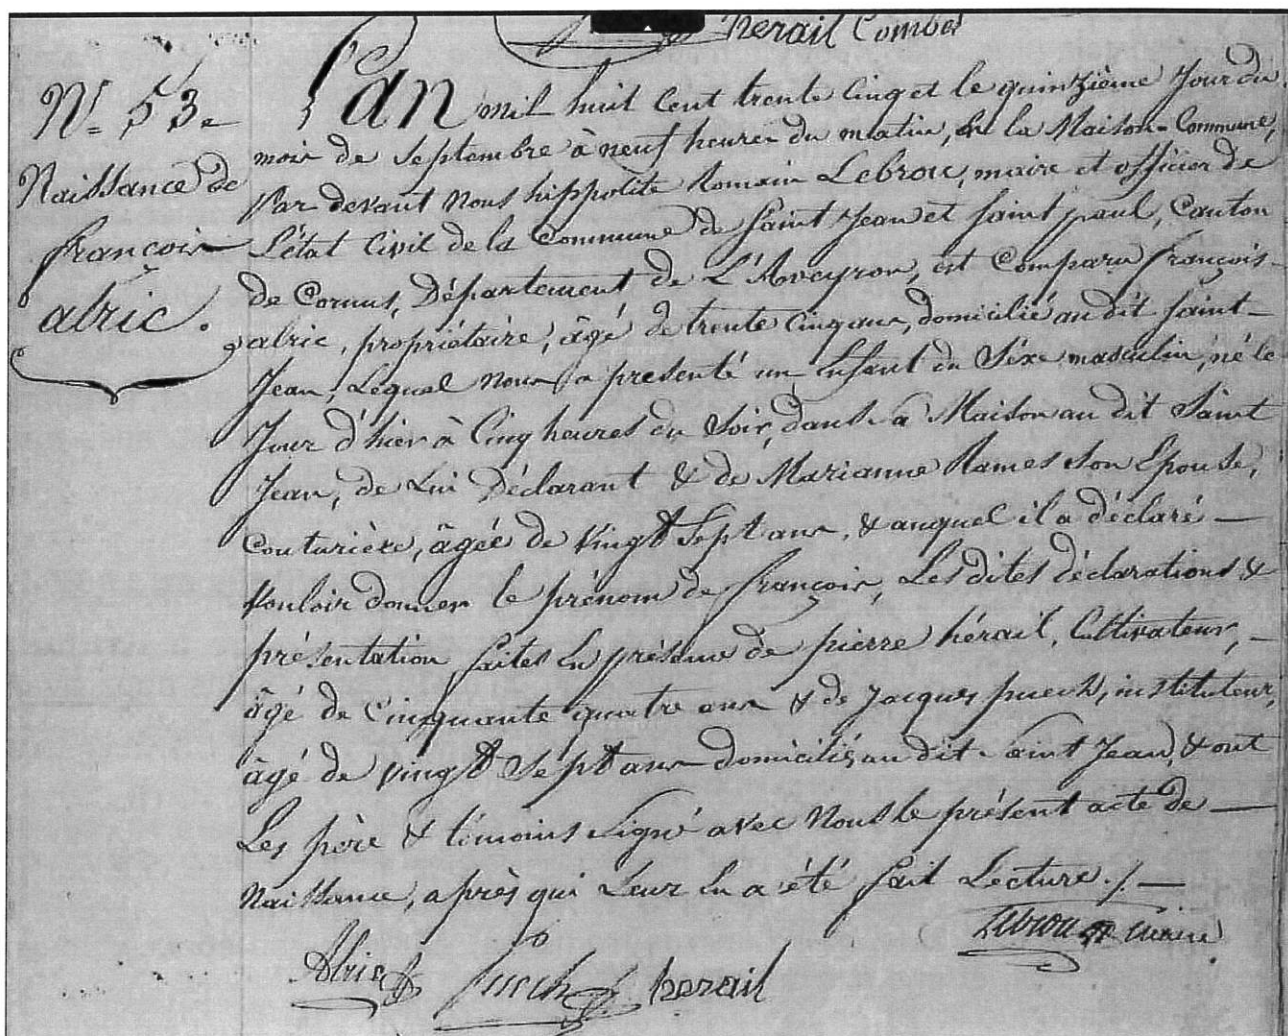 herail Combes
N° 53
Naissance de
françois
alric.
L'an mil huit cent trente cinq et le quinzième Jour du
mois de Septembre à neuf heures du matin, en la Maison-Commune,
Par devant Nous hippolite Romain Lebrou, maire et officier de
L'état Civil de la Commune de Saint Jean et Saint paul, Canton
de Cornus, Département de L'Aveyron, est Comparu françois-
alric, propriétaire, âgé de trente Cinq ans, domicilié au dit Saint-
Jean, Lequel Nous a présenté un Enfant du Séxe masculin, né le
Jour d'hier à Cinq heures du Soir, dans sa Maison au dit Saint
Jean, de Lui Déclarant & de Marianne Rames Son Epouse,
Couturière, âgée de vingt Sept ans, & auquel il a déclaré —
Vouloir donner le prénom de françois, Les dites déclarations &
présentation faites En présence de pierre hérail, Cultivateur, —
âgé de Cinquante quatre ans & de Jacques puech, instituteur,
âgé de vingt Sept ans domiciliés au dit Saint Jean, & ont
Les père & témoins Signé avec Nous le présent acte de —
Naissance, après qui Leur En a été fait Lecture ./. —
Lebrou maire
Alric Puech herail